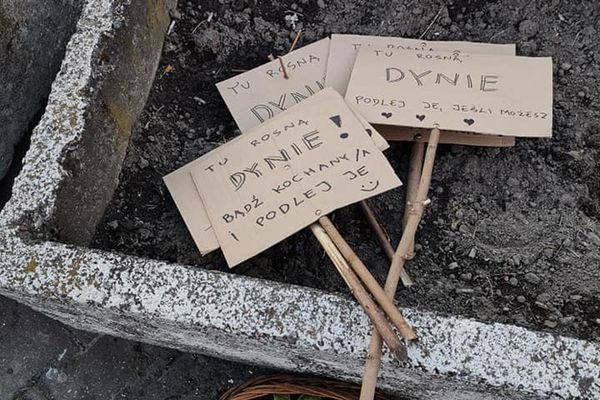 TU ROSNĄ
DYNIE
TU ROSNĄ
DYNIE
PODLEJ JE, JEŚLI MOŻESZ
TU ROSNĄ
DYNIE!
BĄDŹ KOCHANY/A
I PODLEJ JE